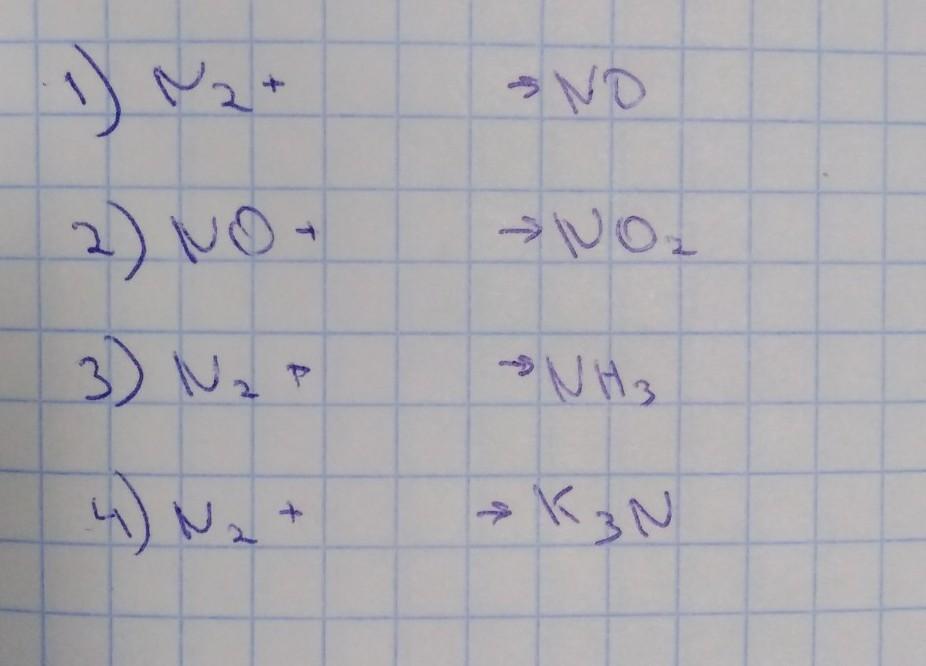 1) N₂ + → NO
2) NO + → NO₂
3) N₂ + → NH₃
4) N₂ + → K₃N